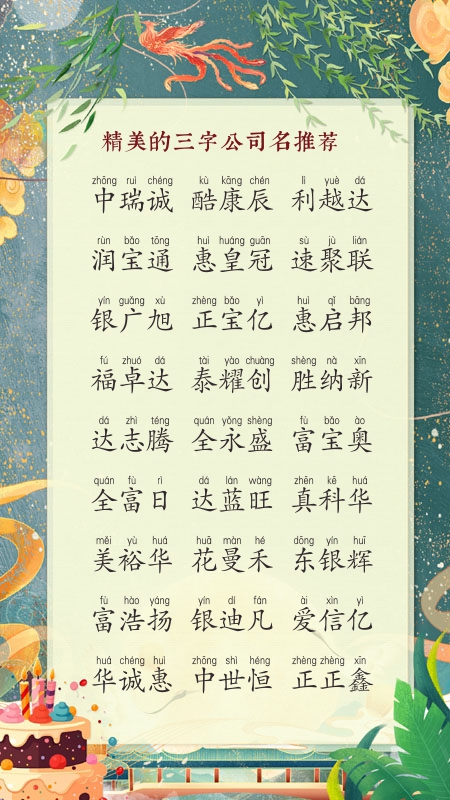 精美的三字公司名推荐
zhōng ruì chéng kù kāng chén lì yuè dá
中瑞诚 酷康辰 利越达
rùn bǎo tōng huì huáng guān sù jù lián
润宝通 惠皇冠 速聚联
yín guǎng xù zhèng bǎo yì huì qǐ bāng
银广旭 正宝亿 惠启邦
fú zhuó dá tài yào chuàng shèng nà xīn
福卓达 泰耀创 胜纳新
dá zhì téng quán yǒng shèng fù bǎo ào
达志腾 全永盛 富宝奥
quán fù rì dá lán wàng zhēn kē huá
全富日 达蓝旺 真科华
měi yù huá huā màn hé dōng yín huī
美裕华 花曼禾 东银辉
fù hào yáng yín dí fán ài xìn yì
富浩扬 银迪凡 爱信亿
huá chéng huì zhōng shì héng zhèng zhèng xīn
华诚惠 中世恒 正正鑫